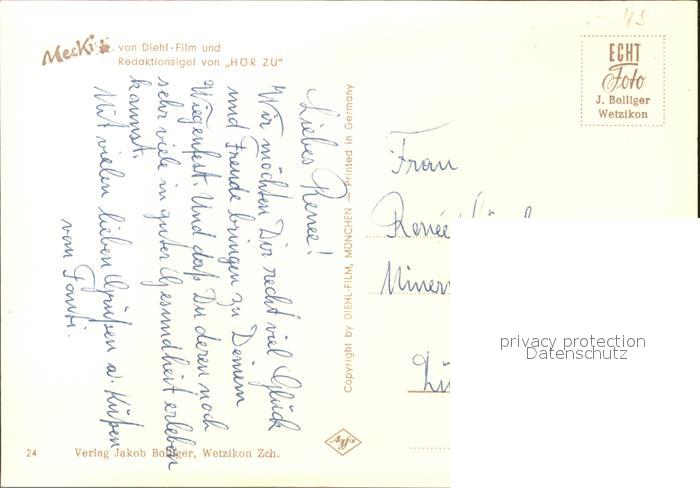 Mecki . von Diehl-Film und
Redaktionsigel von „HÖR ZU"
ECHT
Foto
J. Bolliger
Wetzikon
Liebes Renée!
Wir möchten Dir recht viel Glück
und Freude bringen zu Deinem
Wiegenfest. Und daß Du deren noch
sehr viele in guter Gesundheit erleben
kannst.
Mit vielen lieben Grüßen u. Küßen
vom
Copyright by DIEHL-FILM, MÜNCHEN — Printed in Germany
Frau
Renée
24 Verlag Jakob Bolliger, Wetzikon Zch.
privacy protection
Datenschutz